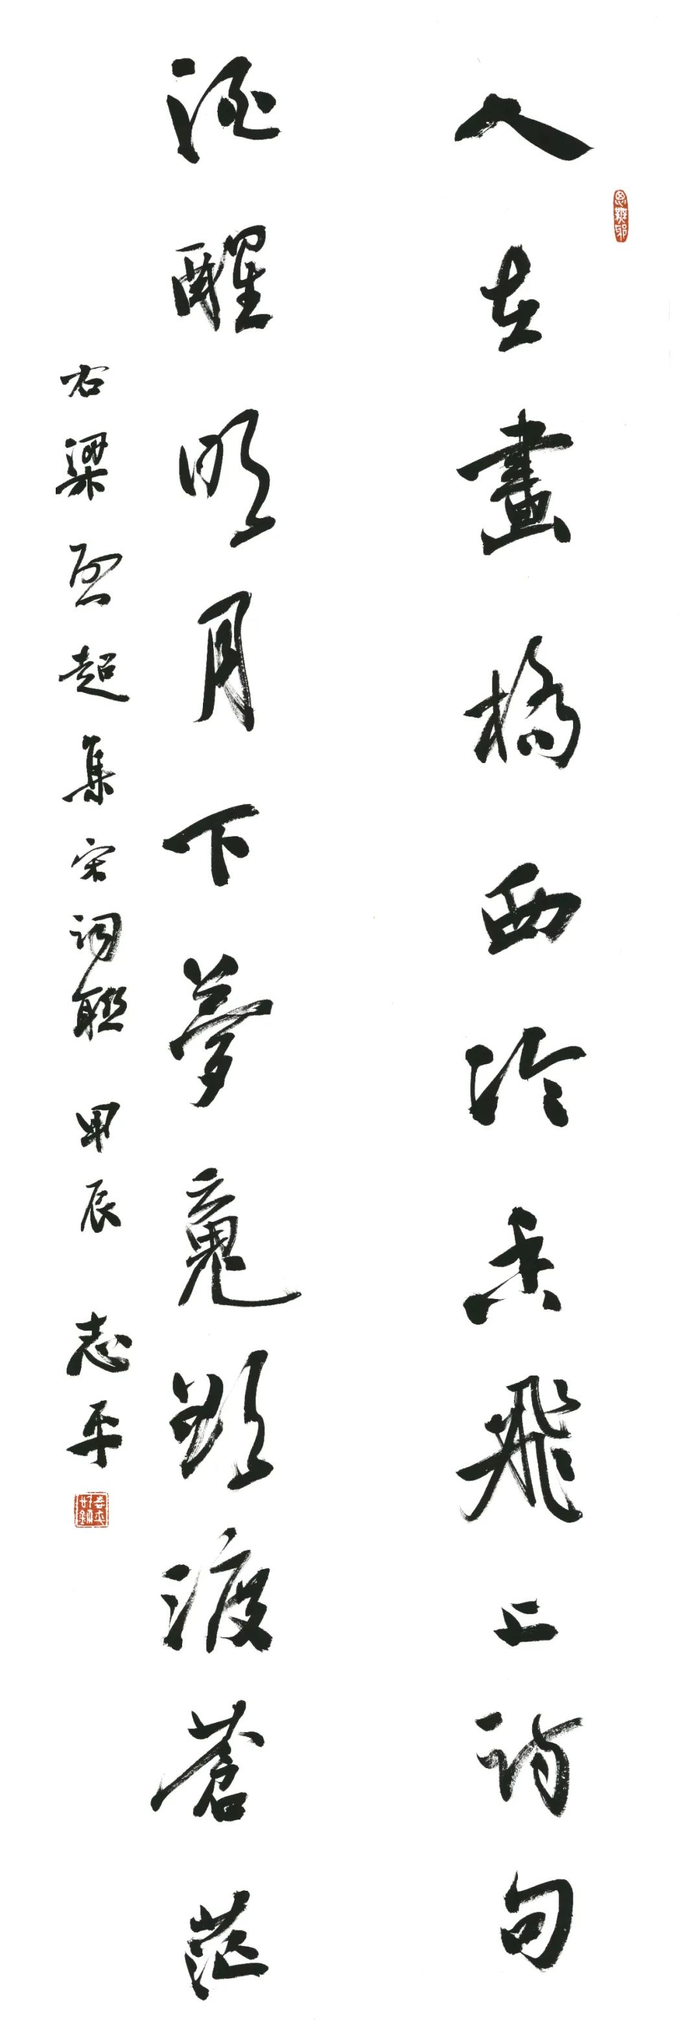 人在畫橋西冷香飛上詩句
酒醒明月下夢魂欲渡蒼茫
右梁啓超集宋詞聯 甲辰 志平
思無邪